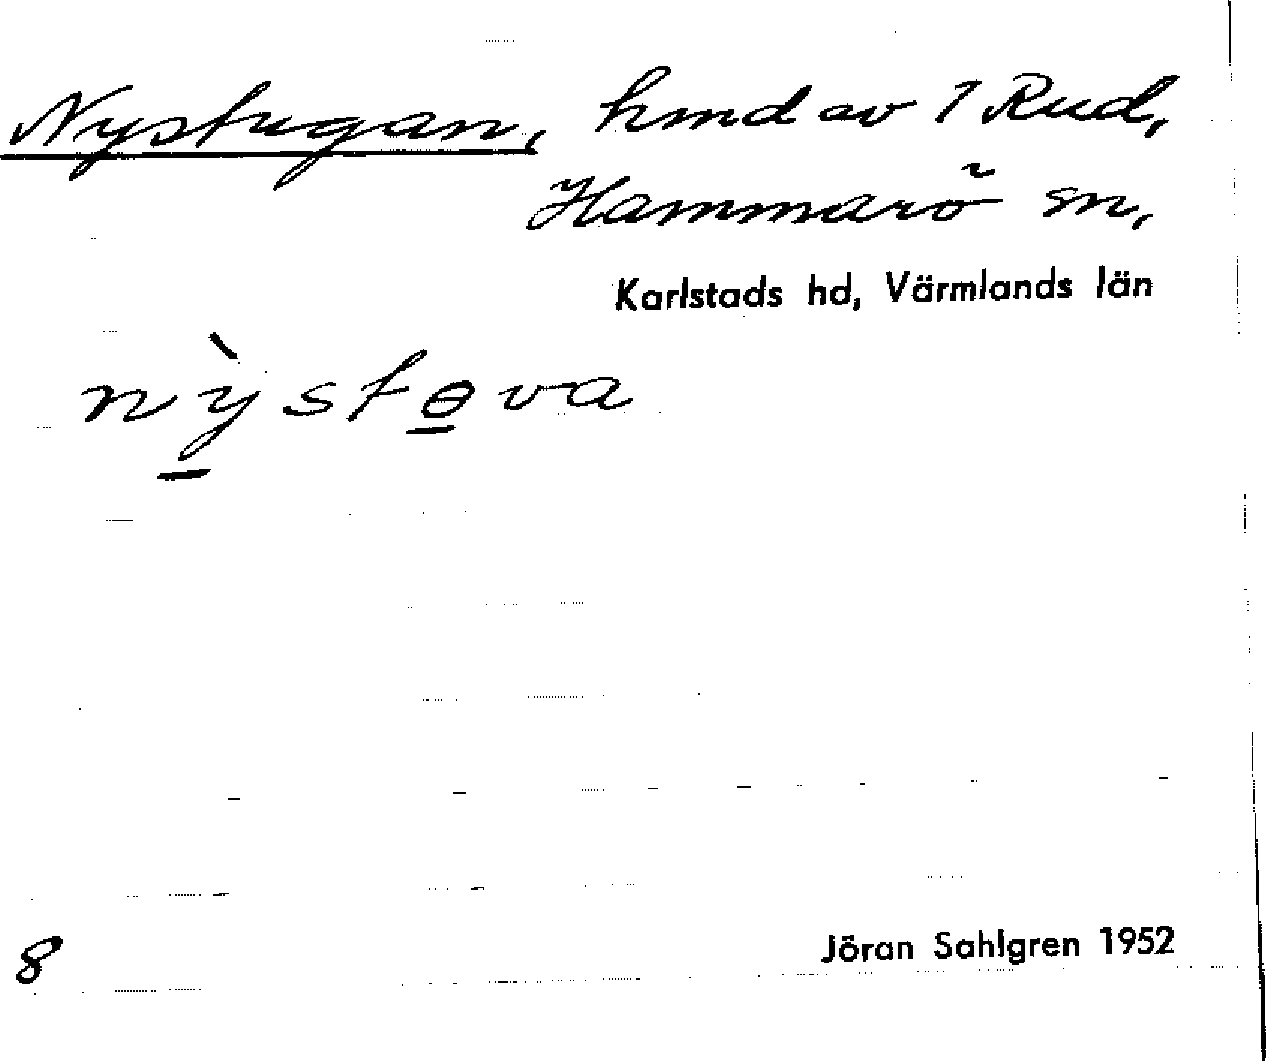 Nystugan, hmd av 1 Rud,
Hammarö sn,
Karlstads hd, Värmlands län
nỳstɵva
8
Jöran Sahlgren 1952